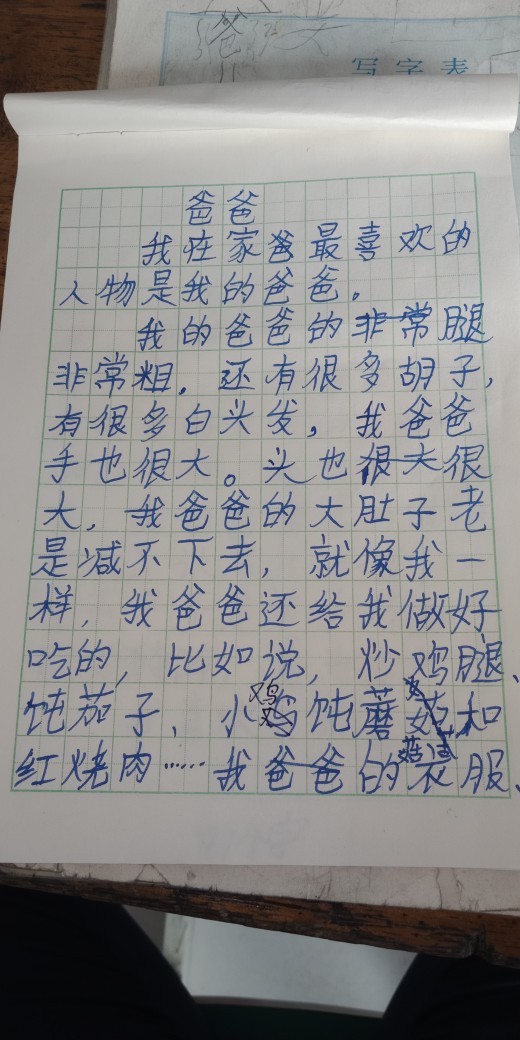 爸
写字表
爸爸
我在家爸最喜欢的
人物是我的爸爸。
我的爸爸的非常腿
非常粗，还有很多胡子，
有很多白头发，我爸爸
手也很大。头也很大很
大，我爸爸的大肚子老
是减不下去，就像我一
样，我爸爸还给我做好
吃的，比如说，炒鸡腿、
饨茄子、小鸡饨蘑菇和
红烧肉……我爸爸的衣服、